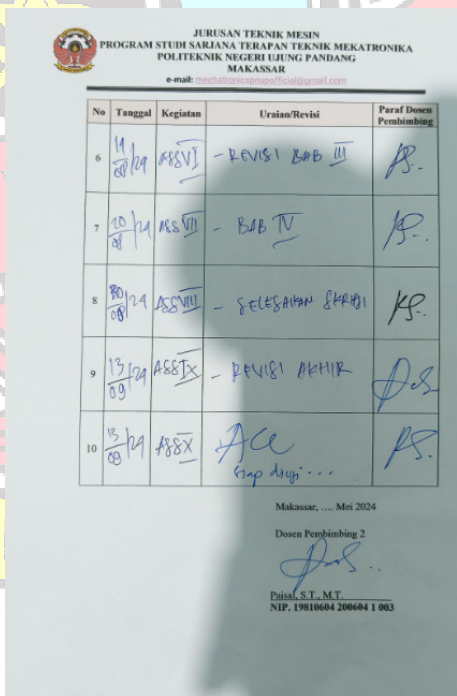 JURUSAN TEKNIK MESIN
PROGRAM STUDI SARJANA TERAPAN TEKNIK MEKATRONIKA
POLITEKNIK NEGERI UJUNG PANDANG
MAKASSAR
e-mail: mechatronicspnupofficial@gmail.com
No Tanggal Kegiatan Uraian/Revisi Paraf Dosen Pembimbing
6 /24 ASS VI - REVISI BAB III
7 20/08/24 ASS VII - BAB IV
8 /24 ASS VIII - SELESAIKAN SKRIPSI
9 13/09/24 ASS IX - REVISI AKHIR
10 13/09/24 ASS X ACC
siap diuji ...
Makassar, .... Mei 2024
Dosen Pembimbing 2
Paisal, S.T., M.T.
NIP. 19810604 200604 1 003